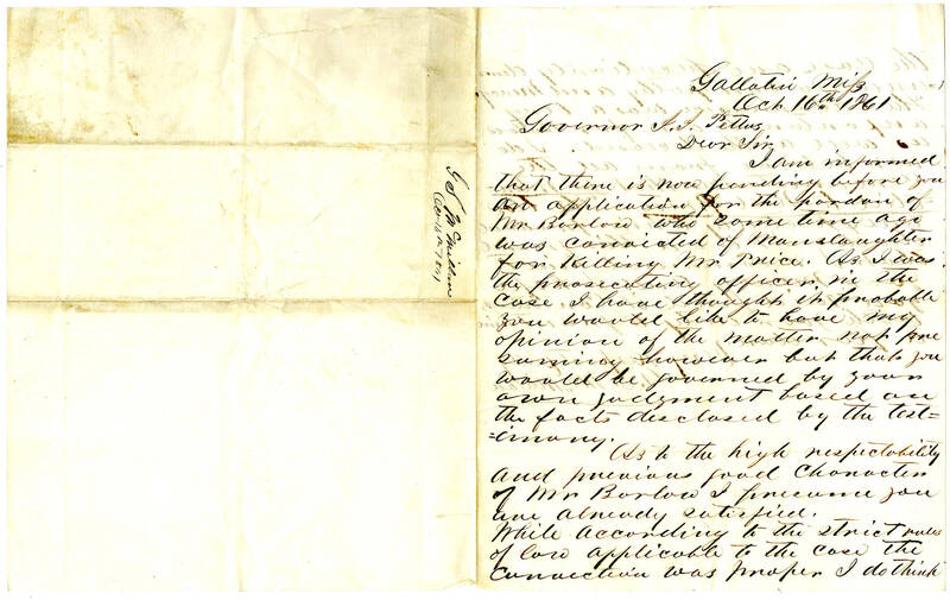 G. S. McMillan
Oct 16th 1861
Gallatin Miss
Oct. 16th 1861
Governor J. J. Pettus
Dear Sir
I am informed
that there is now pending before you
an application for the pardon of
Mr Barlow who some time ago
was convicted of Manslaughter
for Killing Mr Price. As I was
the prosecuting officer in the
case I have thought it probable
you would like to have my
opinion of the matter not pre
suming however but that you
would be governed by your
own judgment based on
the facts disclosed by the test=
=imony.
As to the high respectability
and previous good character
of Mr Barlow I presume you
are already satisfied.
While according to the strict rules
of law applicable to the case the
conviction was proper I do think